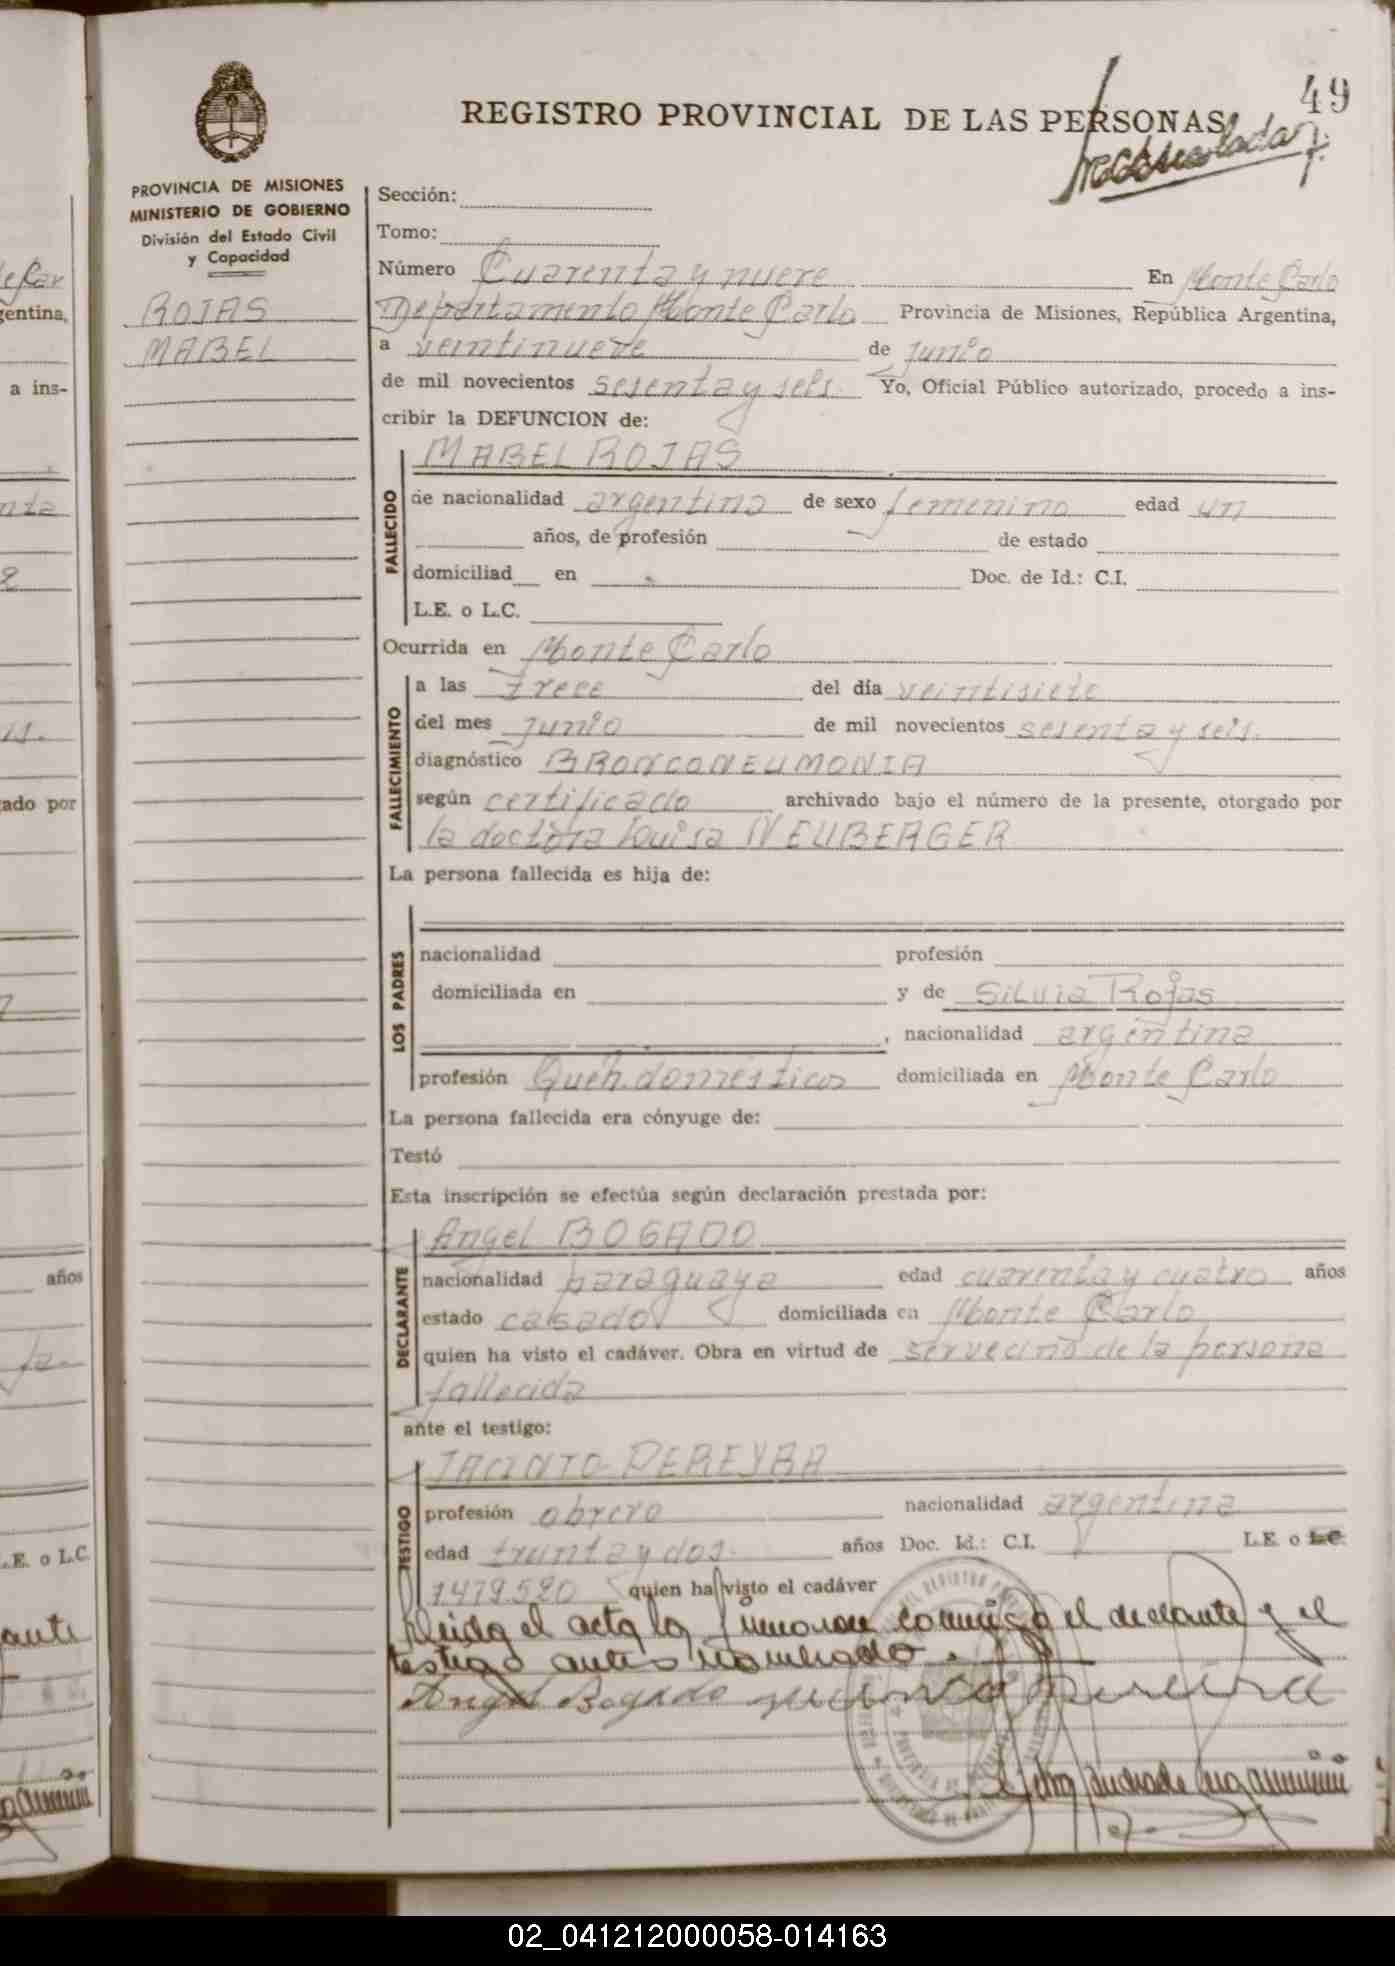 49
REGISTRO PROVINCIAL DE LAS PERSONAS
PROVINCIA DE MISIONES
MINISTERIO DE GOBIERNO
División del Estado Civil
y Capacidad
ROJAS
MABEL
Sección:
Tomo:
Número Cuarenta y nueve En Monte Carlo
Departamento Monte Carlo Provincia de Misiones, República Argentina,
a veintinueve de junio
de mil novecientos sesenta y seis. Yo, Oficial Público autorizado, procedo a ins-
cribir la DEFUNCION de:
MABEL ROJAS
FALLECIDO
de nacionalidad argentina de sexo femenino edad un
años, de profesión de estado
domiciliad en Doc. de Id.: C.I.
L.E. o L.C.
Ocurrida en Monte Carlo
FALLECIMIENTO
a las trece del día veintisiete
del mes junio de mil novecientos sesenta y seis.
diagnóstico BRONCONEUMONIA
según certificado archivado bajo el número de la presente, otorgado por
la doctora Luisa NEUBERGER
La persona fallecida es hija de:
LOS PADRES
nacionalidad profesión
domiciliada en y de Silvia Rojas
, nacionalidad argentina
profesión Queh. domésticos domiciliada en Monte Carlo
La persona fallecida era cónyuge de:
Testó
Esta inscripción se efectúa según declaración prestada por:
Angel BOGADO
DECLARANTE
nacionalidad paraguaya edad cuarenta y cuatro años
estado casado domiciliada en Monte Carlo
quien ha visto el cadáver. Obra en virtud de ser vecino de la persona
fallecida
ante el testigo:
JACINTO PEREYRA
TESTIGO
profesión obrero nacionalidad argentina
edad treinta y dos. años Doc. Id.: C.I. L.E. o L.C.
1479520 quien ha visto el cadáver
Leida el acta la firmaron conmigo el declarante y el
testigo antes nombrado.
Angel Bogado
gentina,
a ins-
ado por
años
L.E. o L.C.
02_041212000058-014163